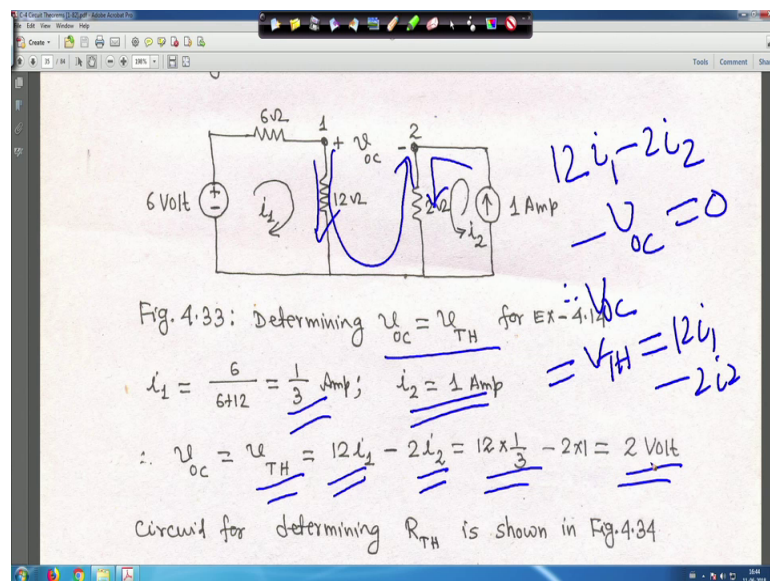 C-4 Circuit Theorems [1-82].pdf - Adobe Acrobat Pro
File Edit View Window Help
Create
35 / 84
100%
Tools Comment Share
6Ω
1
+ v_OC -
2
6 Volt
i_1
12Ω
2Ω
i_2
1 Amp
12 i_1 - 2 i_2
- V_OC = 0
∴ V_OC
= V_TH = 12 i_1
- 2 i_2
Fig. 4.33: Determining v_OC = v_TH for EX-4.14
i_1 = 6/(6+12) = 1/3 Amp; i_2 = 1 Amp
∴ v_OC = v_TH = 12 i_1 - 2 i_2 = 12 × 1/3 - 2×1 = 2 Volt
Circuid for determining R_TH is shown in Fig. 4.34
16:44